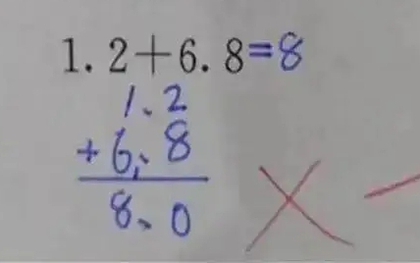 1.2+6.8=8
1.2
+6.8
8.0